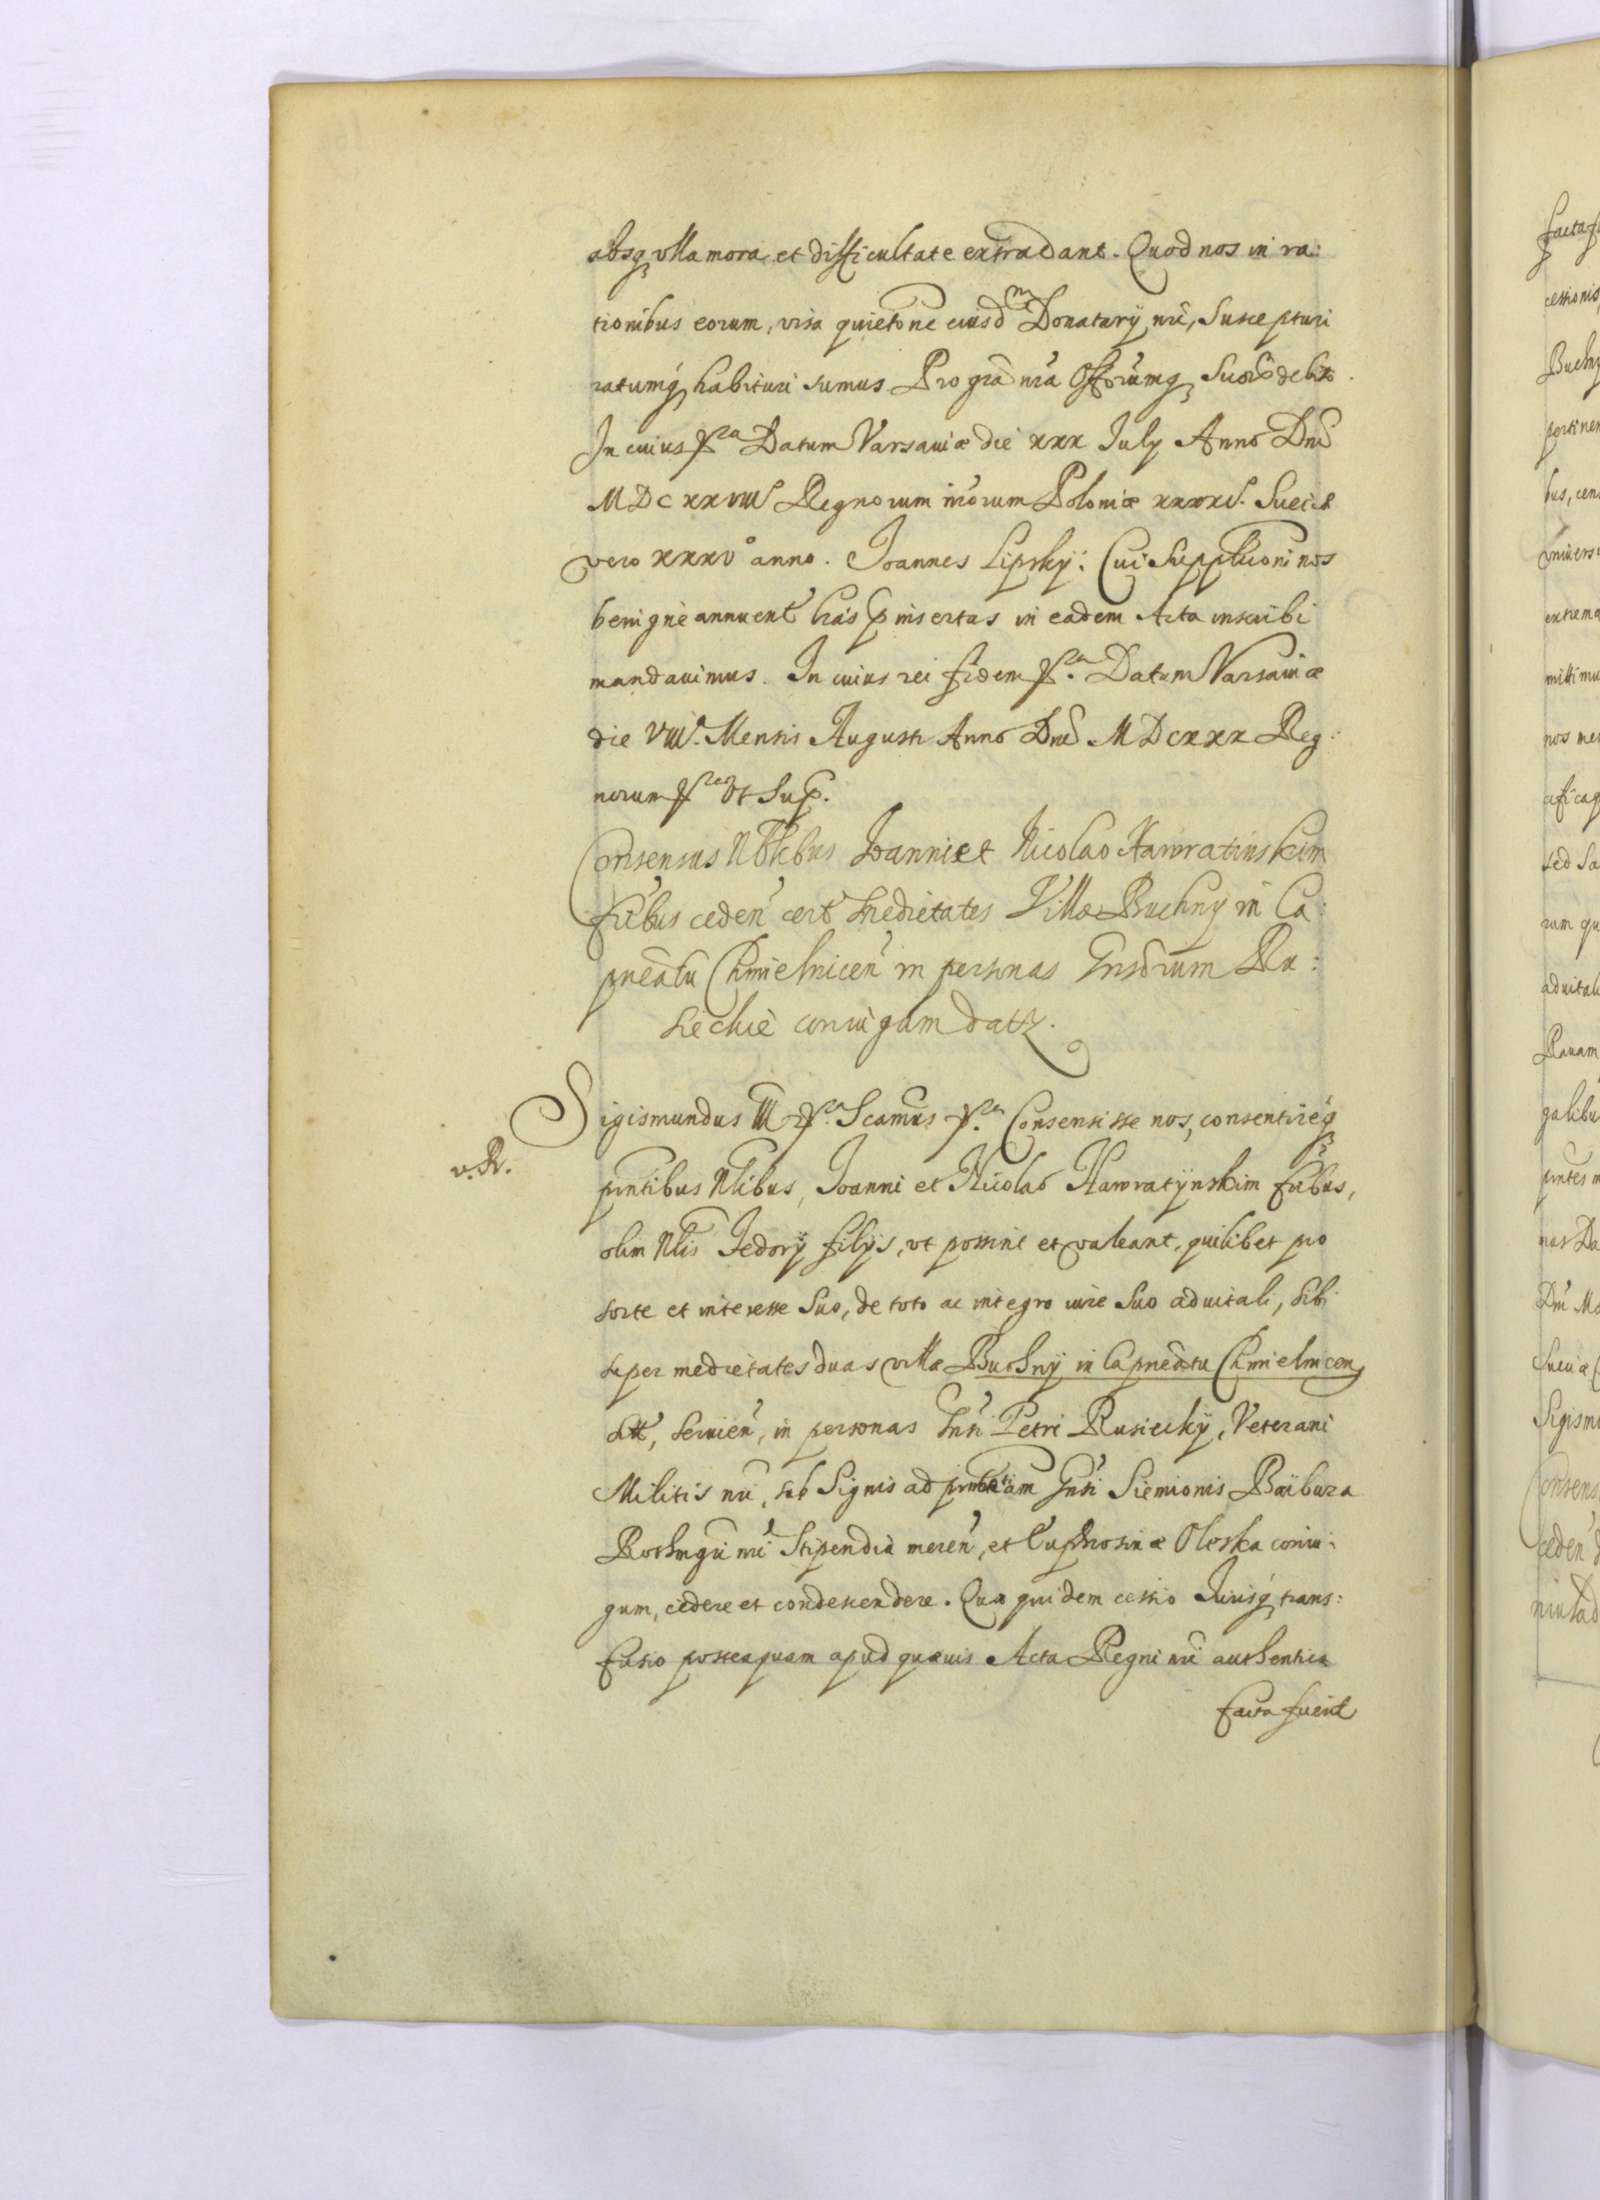 absq ulla mora et difficultate extradant. Quod nos in ra:
tionibus eorum, visa quietone eiusdm Donatarÿ nri, suscepturi
ratumq habituri sumus Pro gra nra Offorumq suor debito.
In cuius rei Datum Varsaviæ die xxx July Anno Dni
MDCxxviii Regnorum nrorum Poloniæ Sueciæ
vero xxxvo anno. Joannes Lipskÿ. Cui suppliconi nos
benigne annuent has insertas in eadem Acta inscribi
mandavimus. In cuius rei fidem Datum Varsaviæ
die VIII. Mensis Augusti Anno Dni MDCxxx Reg:
norum ut sup.
Consensus Nobilibus Joanni et Nicolao Hawratinskim
fribus ceden cert medietates Villæ Buchnÿ in Ca:
pneatu Chmielnicen in personas Gnsorum Ru:
siechie coniugum datz.
Sigismundus III Scamus Consensisse nos, consentireq
v.R.
pntibus Nlibus, Joanni et Nicolao Hawratÿnskim fribus,
olim Nlis Fedorÿ filÿs, ut possint et valeant, quilibet pro
sorte et interesse suo, de toto ac integro iure suo advitali, sibi
super medietates duas villæ Buchnÿ in Capneatu Chmielnicen
sitt, servien, in personas Gnsi Petri Rusieckÿ, Veterani
Militis nri, sub Signis ad Gnsi Siemionis Baibuza
Rothmgri nri Stipendia meren, et Euphrosinæ Oleska coniu:
gum, cedere et condescendere. Quæ quidem cessio Jurisq trans:
fusio posteaquam apud quævis Acta Regni nri authentica
facta fuerit